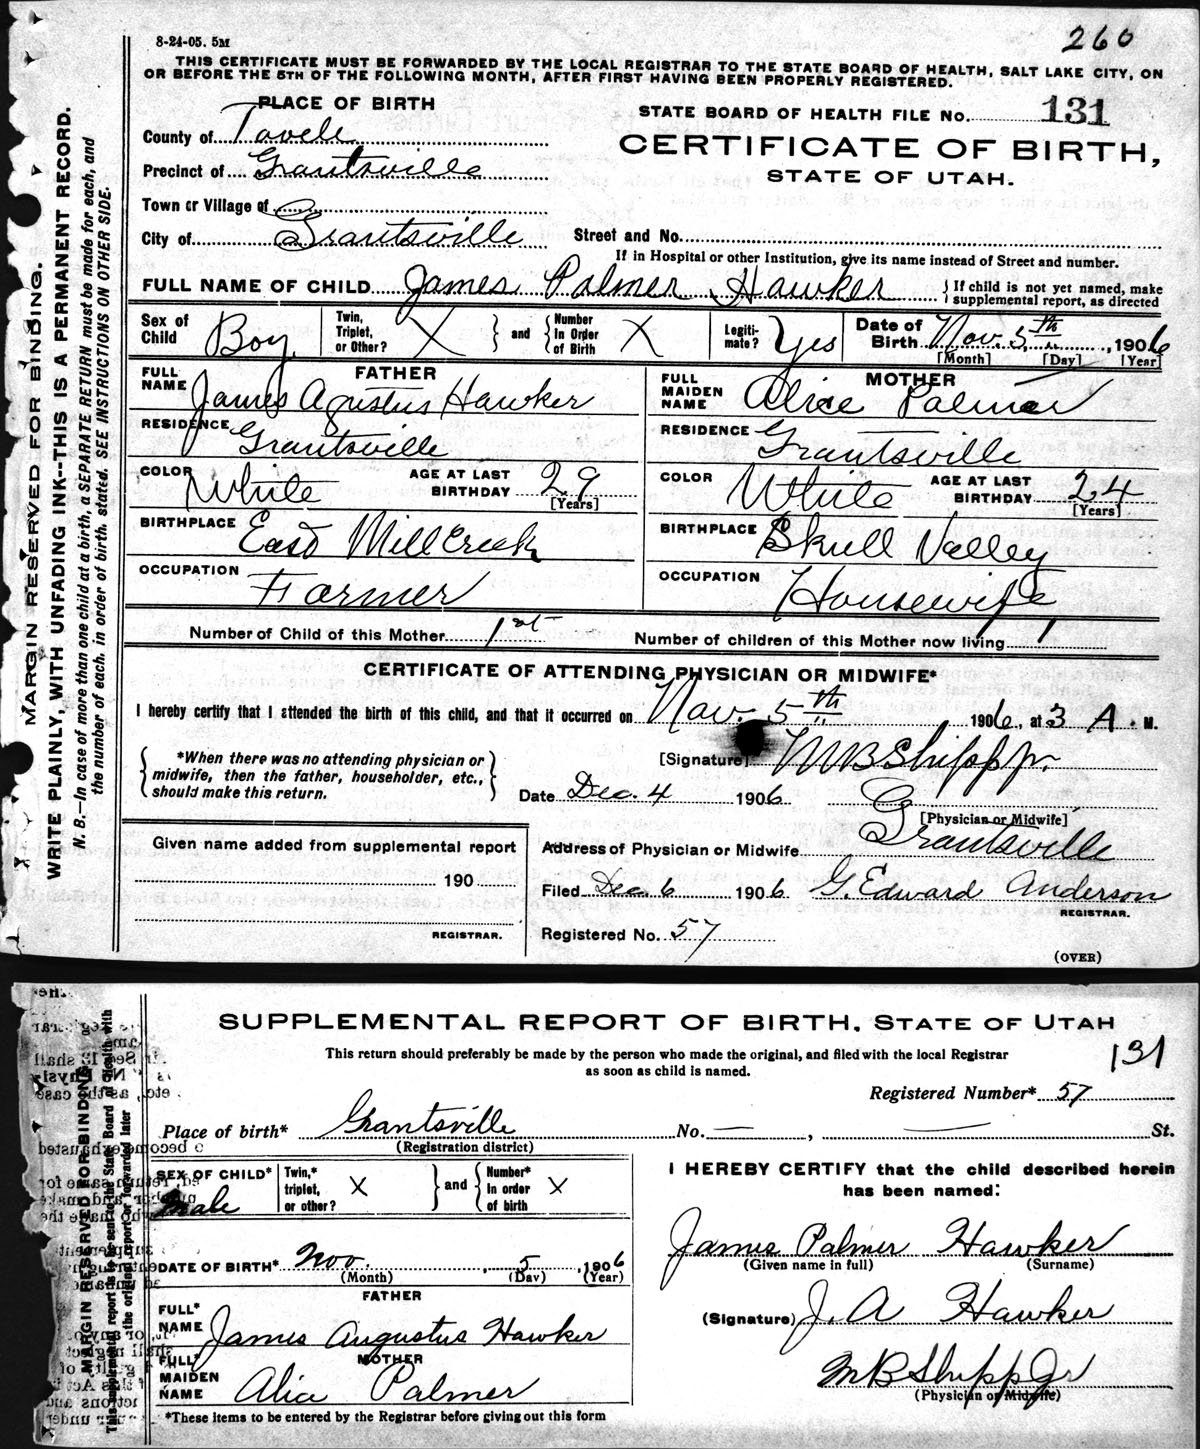 8-24-05. 5M
260
THIS CERTIFICATE MUST BE FORWARDED BY THE LOCAL REGISTRAR TO THE STATE BOARD OF HEALTH, SALT LAKE CITY, ON
OR BEFORE THE 5TH OF THE FOLLOWING MONTH, AFTER FIRST HAVING BEEN PROPERLY REGISTERED.
PLACE OF BIRTH
STATE BOARD OF HEALTH FILE No. 131
County of Tooele
CERTIFICATE OF BIRTH,
Precinct of Grantsville
STATE OF UTAH.
Town or Village of
City of Grantsville Street and No.
If in Hospital or other Institution, give its name instead of Street and number.
FULL NAME OF CHILD James Palmer Hawker { If child is not yet named, make
supplemental report, as directed
Sex of Child Boy Twin, Triplet, or Other? X } and { Number In Order of Birth X Legitimate? Yes Date of Birth Nov. 5th, 1906
[Month] [Day] [Year]
FATHER
FULL NAME James Agustus Hawker
RESIDENCE Grantsville
COLOR White AGE AT LAST BIRTHDAY 29
[Years]
BIRTHPLACE East Mill Creek
OCCUPATION Farmer
MOTHER
FULL MAIDEN NAME Alice Palmer
RESIDENCE Grantsville
COLOR White AGE AT LAST BIRTHDAY 24
[Years]
BIRTHPLACE Skull Valley
OCCUPATION Housewife
Number of Child of this Mother 1st Number of children of this Mother now living 1
CERTIFICATE OF ATTENDING PHYSICIAN OR MIDWIFE*
I hereby certify that I attended the birth of this child, and that it occurred on Nov. 5th 1906, at 3 A. M.
{ *When there was no attending physician or
midwife, then the father, householder, etc.,
should make this return. }
[Signature] M B Shipp Jr.
Date Dec. 4 1906
[Physician or Midwife]
Address of Physician or Midwife Grantsville
Filed Dec 6 1906 G. Edward Anderson
REGISTRAR.
Registered No. 57
(OVER)
Given name added from supplemental report
190
REGISTRAR.
MARGIN RESERVED FOR BINDING.
WRITE PLAINLY, WITH UNFADING INK--THIS IS A PERMANENT RECORD.
N. B.—In case of more than one child at a birth, a SEPARATE RETURN must be made for each, and
the number of each, in order of birth, stated. SEE INSTRUCTIONS ON OTHER SIDE.
SUPPLEMENTAL REPORT OF BIRTH, STATE OF UTAH
This return should preferably be made by the person who made the original, and filed with the local Registrar
as soon as child is named.
131
Registered Number* 57
Place of birth* Grantsville No. — , — St.
(Registration district)
SEX OF CHILD* Male Twin,* triplet, or other? X } and { Number* In order of birth X
DATE OF BIRTH* Nov. 5, 1906
(Month) (Day) (Year)
FATHER
FULL* NAME James Augustus Hawker
MOTHER
FULL* MAIDEN NAME Alice Palmer
*These items to be entered by the Registrar before giving out this form
I HEREBY CERTIFY that the child described herein
has been named:
James Palmer Hawker
(Given name in full) (Surname)
(Signature) J. A Hawker
M B Shipp Jr
(Physician or Midwife)
MARGIN RESERVED FOR BINDING